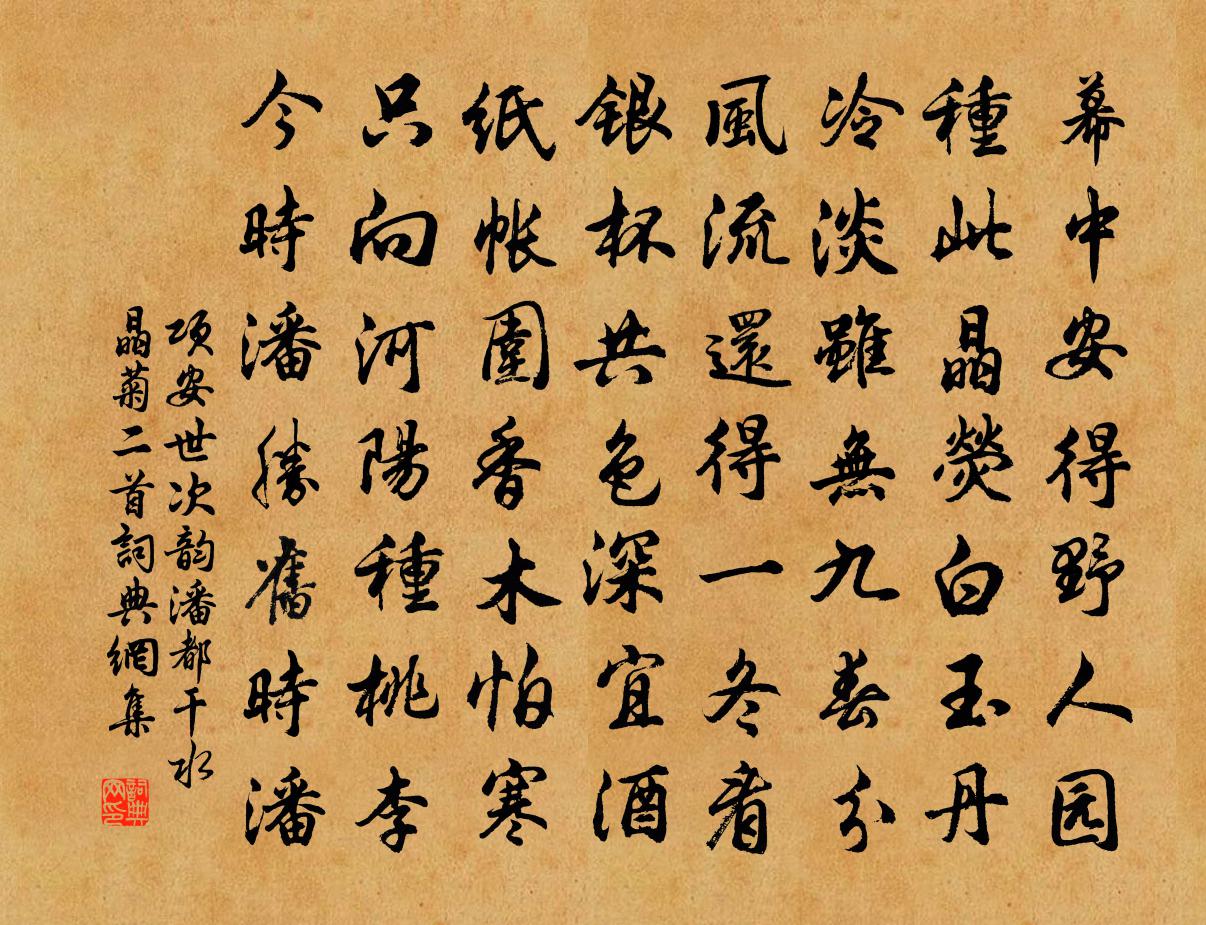 幕中安得野人园
種此晶熒白玉丹
冷淡雖無九春分
風流還得一冬看
銀杯共色深宜酒
紙帳圍香木怕寒
只向河陽種桃李
今時潘勝舊時潘
項安世次韵潘都干水
晶菊二首詞典網集
詞典
网印